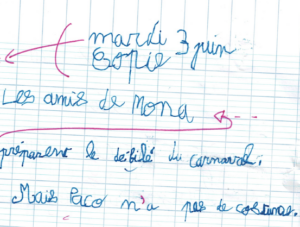 mardi 3 juin
Copie
Les amis de Mona
préparent le défilé du carnaval.
Mais Paco n'a pas de costume.